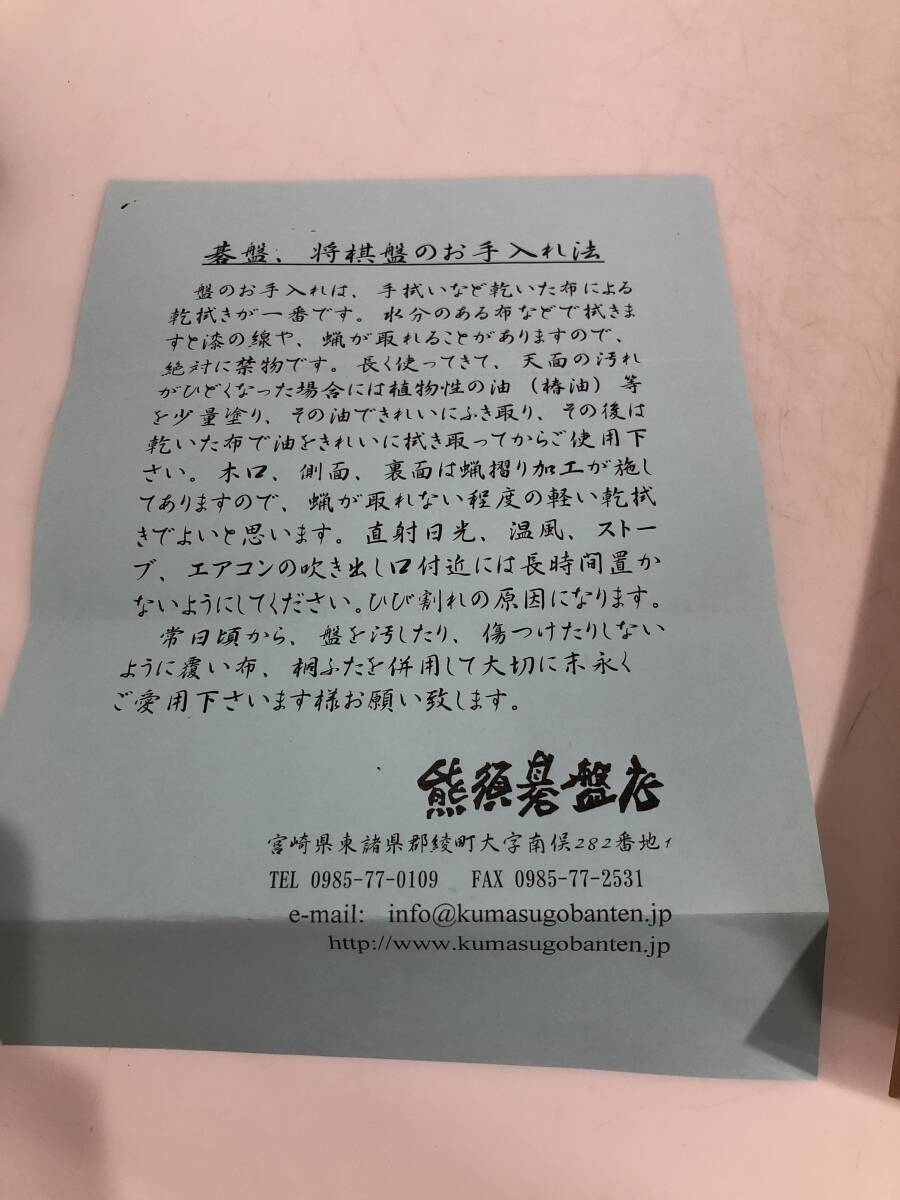 碁盤、将棋盤のお手入れ法
盤のお手入れは、手拭いなど乾いた布による
乾拭きが一番です。水分のある布などで拭きま
すと漆の線や、蝋が取れることがありますので、
絶対に禁物です。長く使ってきて、天面の汚れ
がひどくなった場合には植物性の油（椿油）等
を少量塗り、その油できれいにふき取り、その後は
乾いた布で油をきれいに拭き取ってからご使用下
さい。木口、側面、裏面は蝋摺り加工が施し
てありますので、蝋が取れない程度の軽い乾拭
きでよいと思います。直射日光、温風、ストー
ブ、エアコンの吹き出し口付近には長時間置か
ないようにしてください。ひび割れの原因になります。
常日頃から、盤を汚したり、傷つけたりしない
ように覆い布、桐ふたを併用して大切に末永く
ご愛用下さいます様お願い致します。
熊須碁盤店
宮崎県東諸県郡綾町大字南俣282番地1
TEL 0985-77-0109 FAX 0985-77-2531
e-mail: info@kumasugobanten.jp
http://www.kumasugobanten.jp